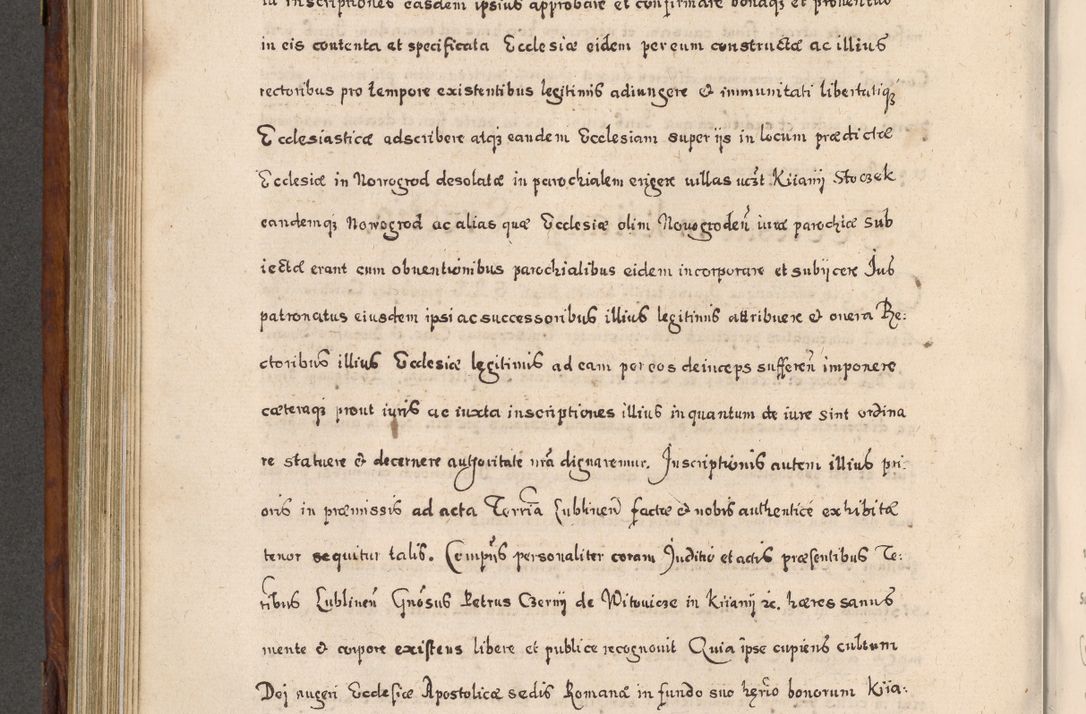 in inscriptiones easdem ipsius approbare et confirmare bonaqꝫ et prouentus
in eis contenta et specificata Ecclesiæ eidem per eum constructæ ac illius
rectoribus pro tempore existentibus legitimis adiungere & immunitati libertatiqꝫ
Ecclesiasticæ adscribere atqꝫ eandem Ecclesiam super ijs in locum prædictæ
Ecclesiæ in Nowogrod desolatæ in parochialem erigere uillas uczt Kiianij Stoczek
eandemqꝫ Nowogrod ac alias quæ Ecclesiæ olim Novogroden̄ iure parochiæ sub
iectæ erant cum obuentionibus parochialibus eidem incorporare et subijcere Jus
patronatus eiusdem ipsi ac successoribus illius legitimis attribuere & onera Re:
ctoribus illius Ecclesiæ legitimis ad eam per eos deinceps sufferen̄ imponere
cæteraqꝫ prout iuris ac iuxta inscriptiones illius in quantum de iure sint ordina
re statuere & decernere authoritate nr̄a dignaremur. Inscriptionis autem illius pri:
oris in præmissis ad acta Terrīa Lublinen̄ factæ & nobis authenticè exhibitæ
tenor sequitur talis. Compn̄s personaliter coram Juditio et actis præsentibus Te:
rribus Lublinen̄ Gn̄osus Petrus Czernij de Witowicze in Kiianij ꝛc. hæres sanus
mente & corpore existens libere et publice recognouit Quia ipse cupiens cultum
Dei augeri Ecclesiæ Apostolicæ sedis Romanæ in fundo suo hær̄io bonorum Kiia: